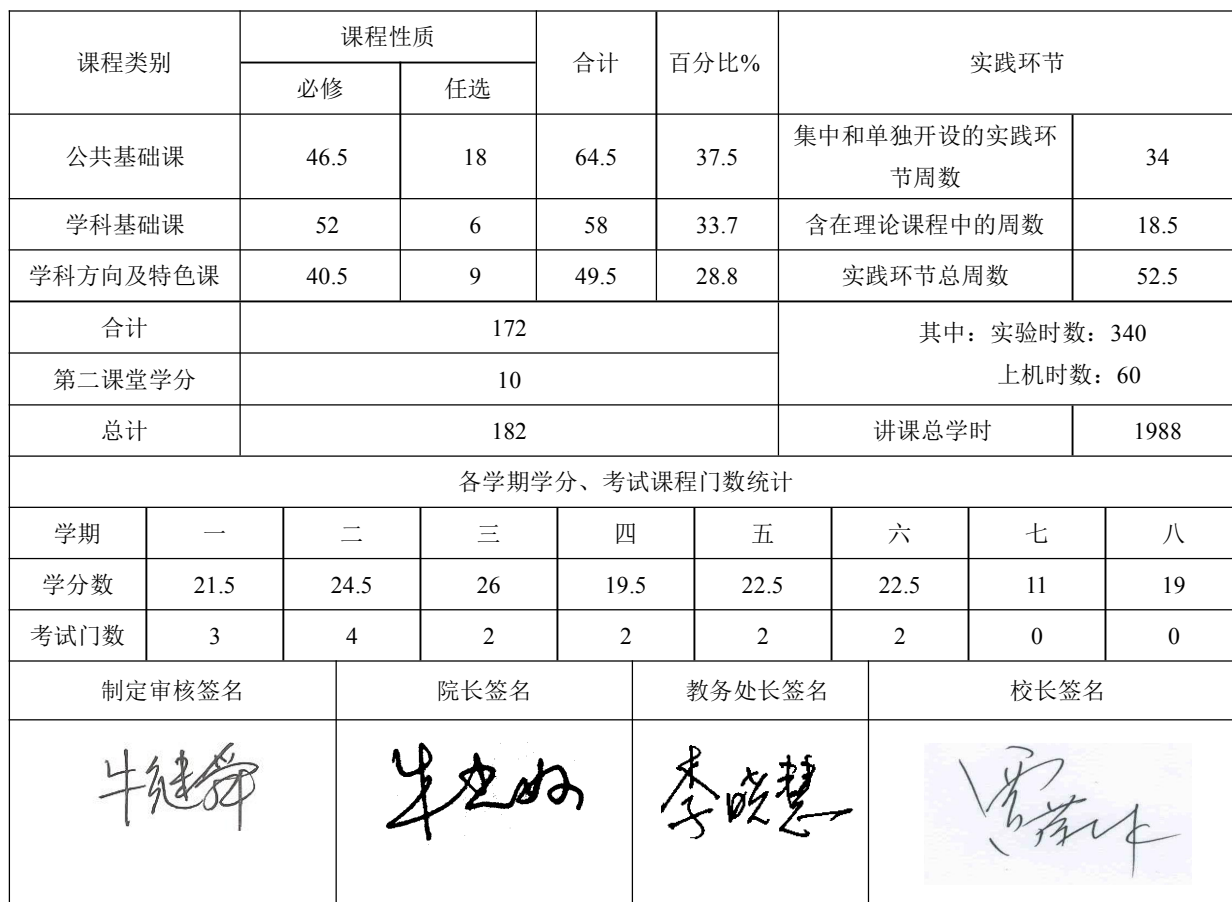 课程类别 课程性质 合计 百分比% 实践环节
必修 任选
公共基础课 46.5 18 64.5 37.5 集中和单独开设的实践环
节周数 34
学科基础课 52 6 58 33.7 含在理论课程中的周数 18.5
学科方向及特色课 40.5 9 49.5 28.8 实践环节总周数 52.5
合计 172 其中：实验时数：340
第二课堂学分 10 上机时数：60
总计 182 讲课总学时 1988
各学期学分、考试课程门数统计
学期 一 二 三 四 五 六 七 八
学分数 21.5 24.5 26 19.5 22.5 22.5 11 19
考试门数 3 4 2 2 2 2 0 0
制定审核签名 院长签名 教务处长签名 校长签名
牛继舜 李晓慧